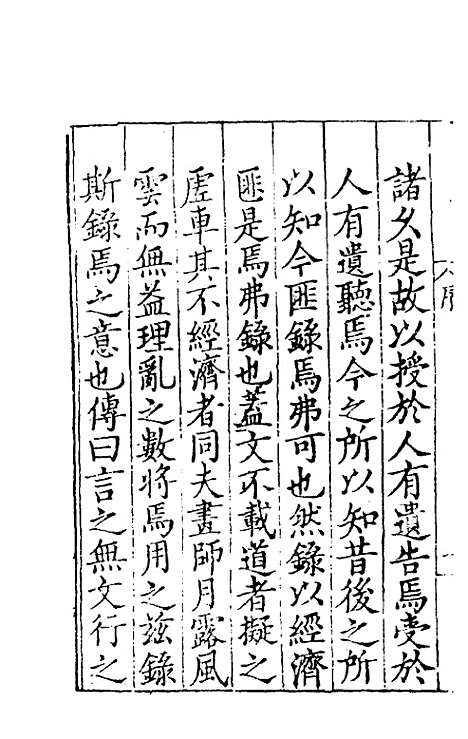 諸久是故以授於人有遺告焉受於
人有遺聽焉今之所以知昔後之所
以知今匪錄焉弗可也然錄以經濟
匪是焉弗錄也蓋文不載道者擬之
虛車其不經濟者同夫畫師月露風
雲而無益理亂之數將焉用之茲錄
斯錄焉之意也傳曰言之無文行之